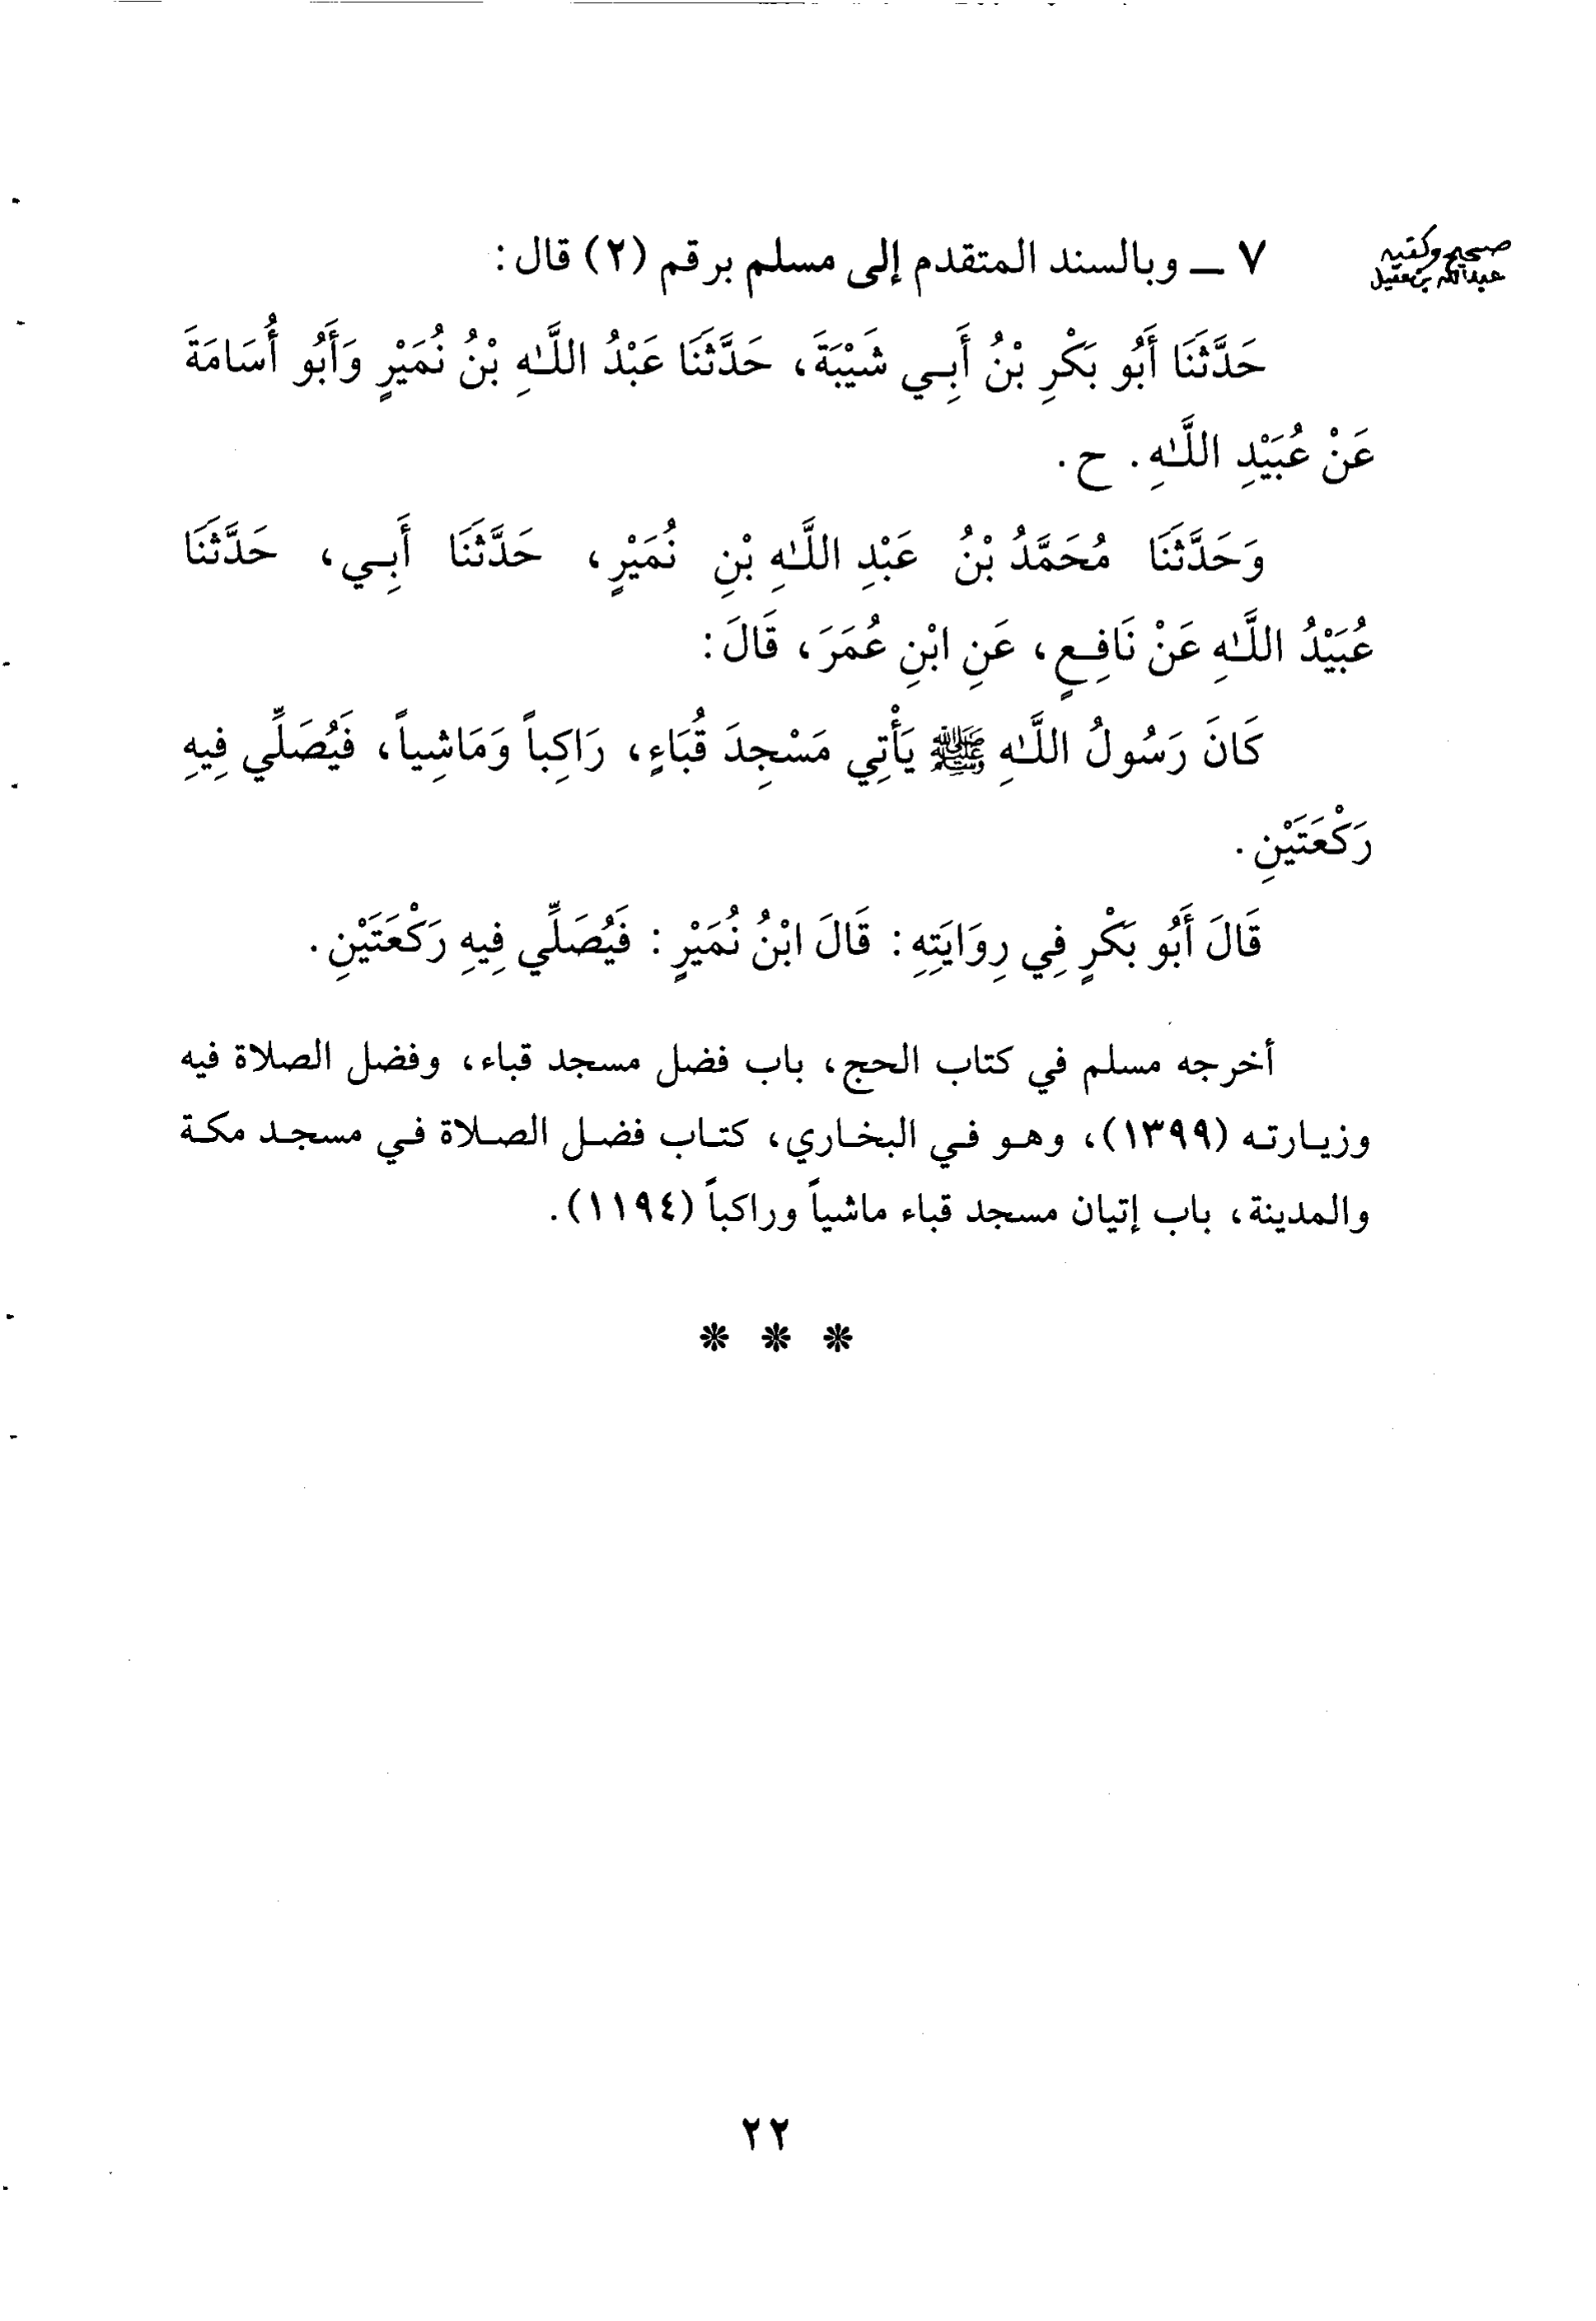 صحيح وكتبه
عبدالله بن عقيل
٧ ـ وبالسند المتقدم إلى مسلم برقم (٢) قال:
حَدَّثَنَا أَبُو بَكْرِ بْنُ أَبِي شَيْبَةَ، حَدَّثَنَا عَبْدُ اللَّهِ بْنُ نُمَيْرٍ وَأَبُو أُسَامَةَ
عَنْ عُبَيْدِ اللَّهِ. ح.
وَحَدَّثَنَا مُحَمَّدُ بْنُ عَبْدِ اللَّهِ بْنِ نُمَيْرٍ، حَدَّثَنَا أَبِي، حَدَّثَنَا
عُبَيْدُ اللَّهِ عَنْ نَافِعٍ، عَنِ ابْنِ عُمَرَ، قَالَ:
كَانَ رَسُولُ اللَّهِ ﷺ يَأْتِي مَسْجِدَ قُبَاءٍ، رَاكِباً وَمَاشِياً، فَيُصَلِّي فِيهِ
رَكْعَتَيْنِ.
قَالَ أَبُو بَكْرٍ فِي رِوَايَتِهِ: قَالَ ابْنُ نُمَيْرٍ: فَيُصَلِّي فِيهِ رَكْعَتَيْنِ.
أخرجه مسلم في كتاب الحج، باب فضل مسجد قباء، وفضل الصلاة فيه
وزيارته (١٣٩٩)، وهو في البخاري، كتاب فضل الصلاة في مسجد مكة
والمدينة، باب إتيان مسجد قباء ماشياً وراكباً (١١٩٤).
* * *
٢٢